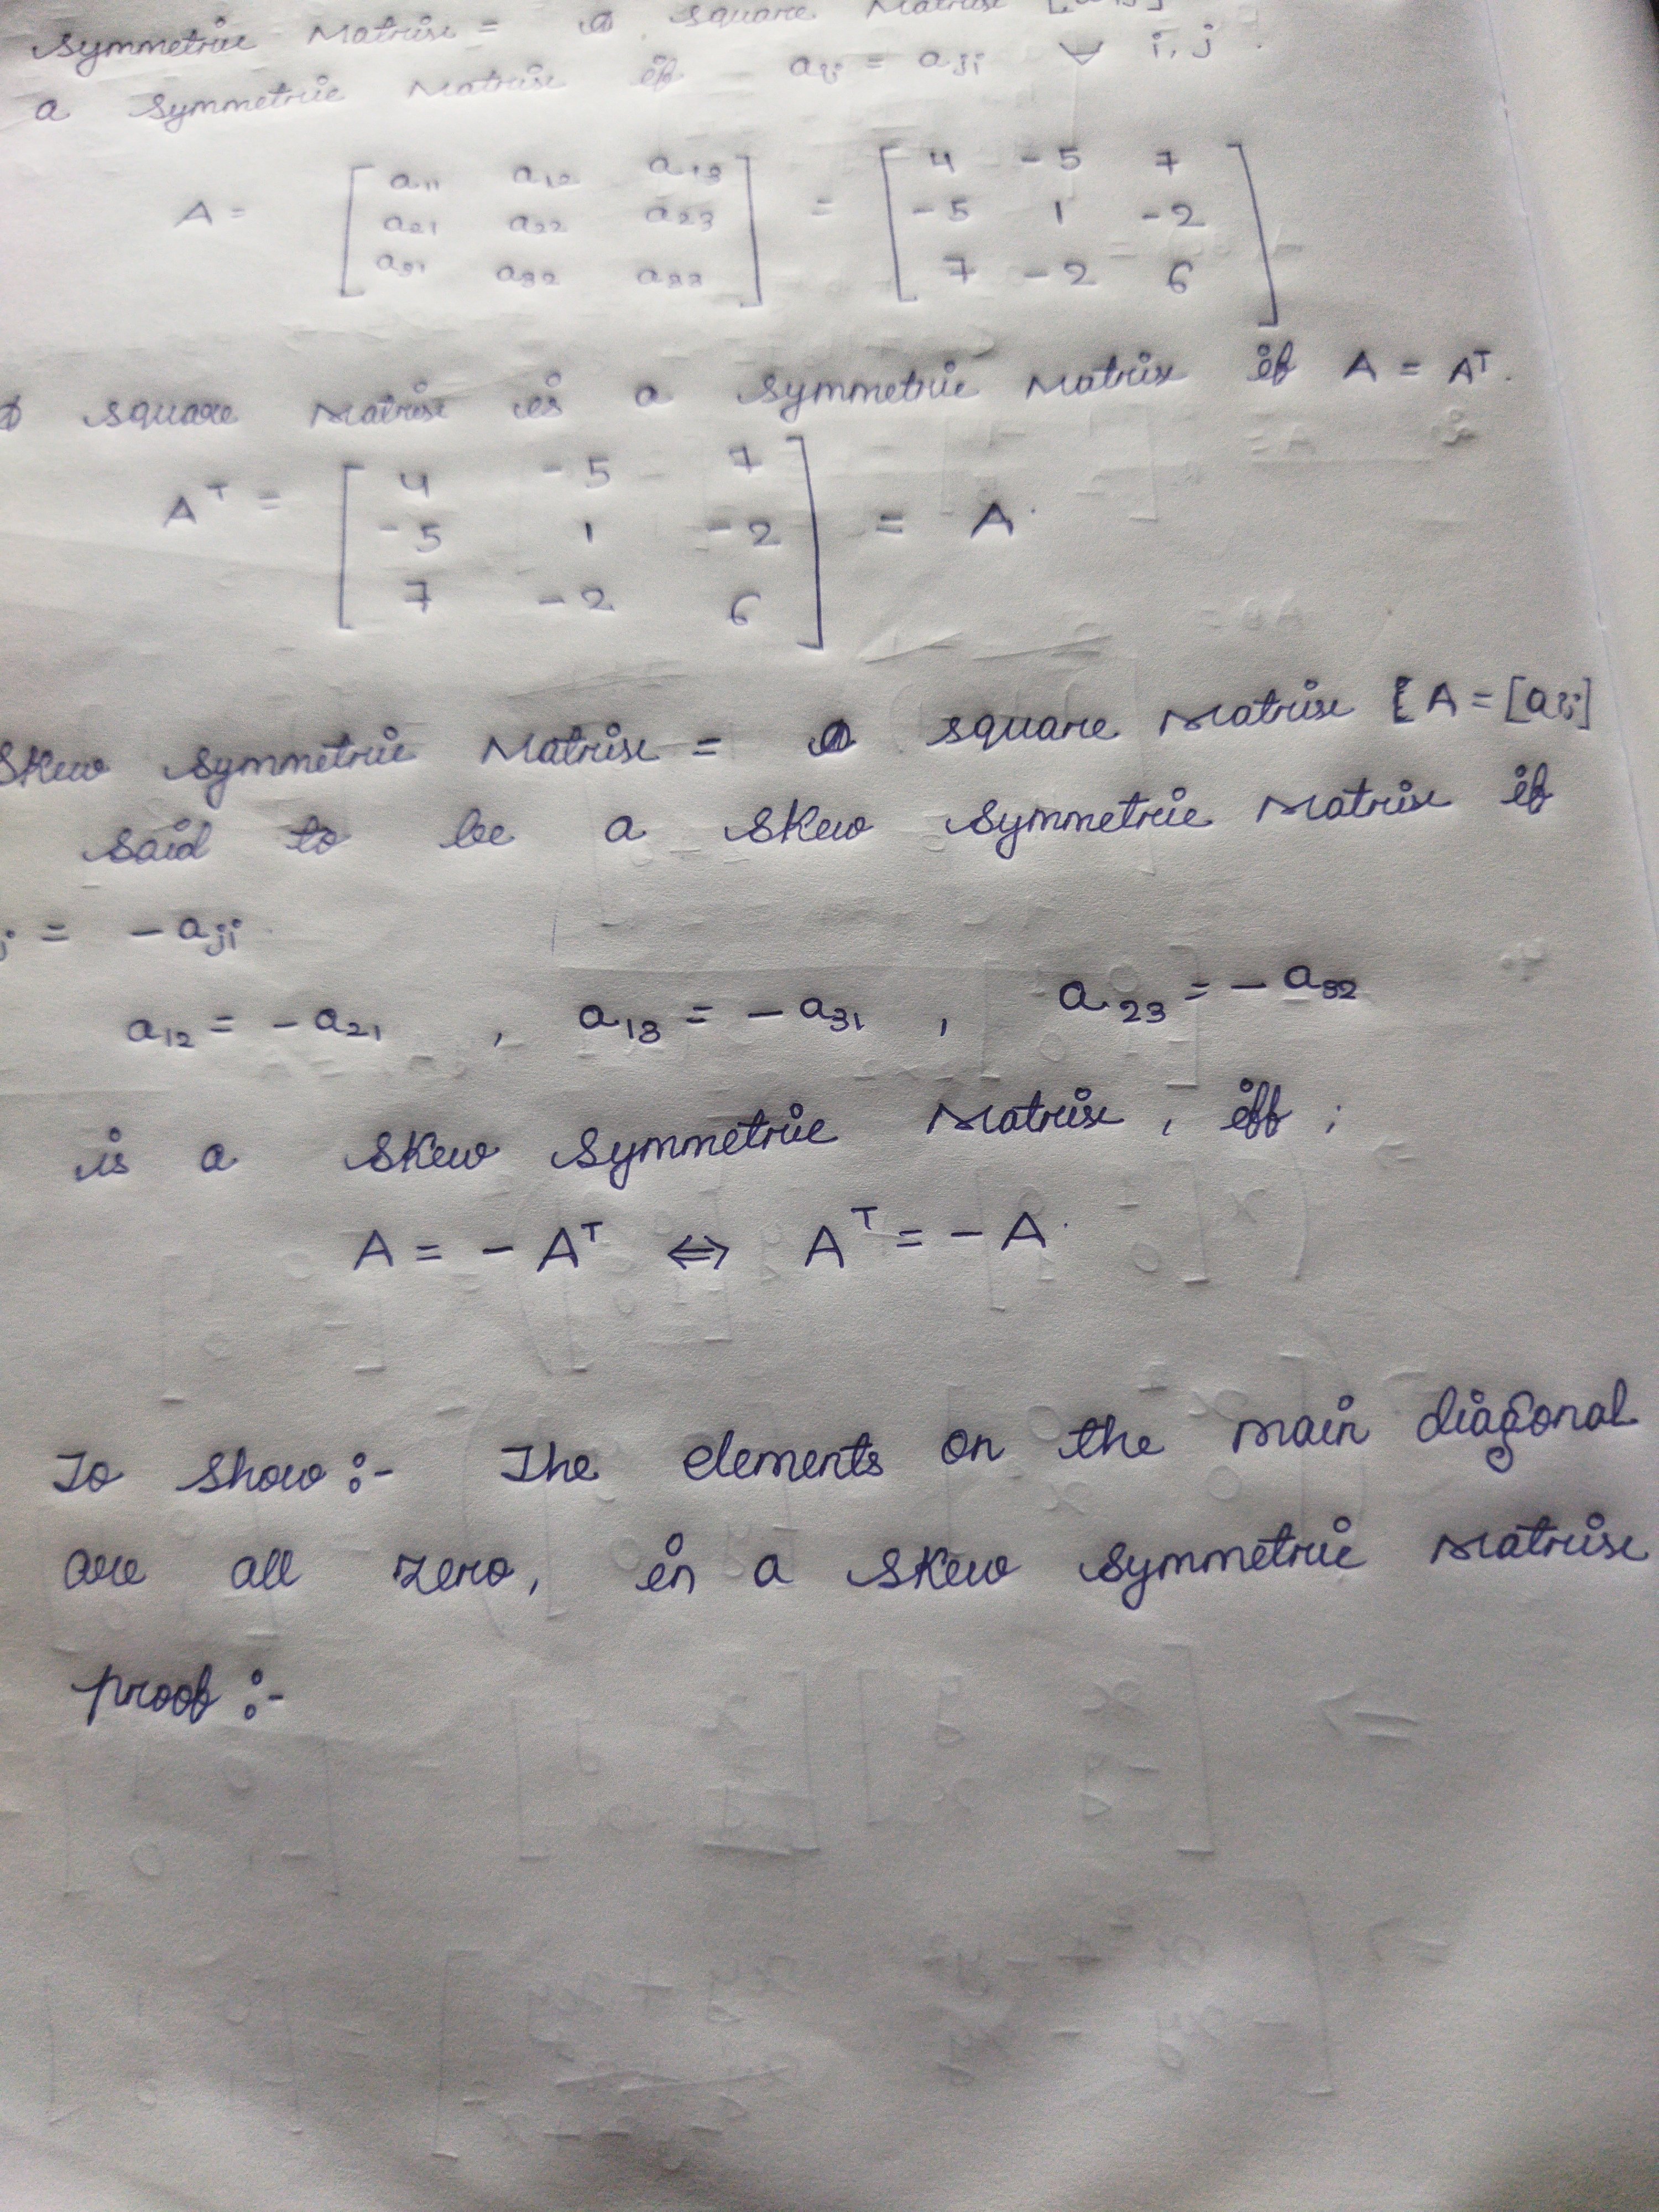 Symmetric Matrix = A square Matrix
a symmetric Matrix if aij = aji ∀ i, j.
A = [ a11 a12 a13 ] = [ 4 -5 7 ]
[ a21 a22 a23 ] [ -5 1 -2 ]
[ a31 a32 a33 ] [ 7 -2 6 ]
A square Matrix is a symmetric Matrix if A = A^T.
A^T = [ 4 -5 7 ] = A.
[ -5 1 -2 ]
[ 7 -2 6 ]
Skew symmetric Matrix = A square Matrix [ A = [aij]
said to be a skew symmetric Matrix if
j = -aji
a12 = -a21 , a13 = -a31 , a23 = -a32
is a skew symmetric Matrix, iff ;
A = -A^T ⇔ A^T = -A.
To show :- The elements on the main diagonal
are all zero, in a skew symmetric Matrix
proof :-